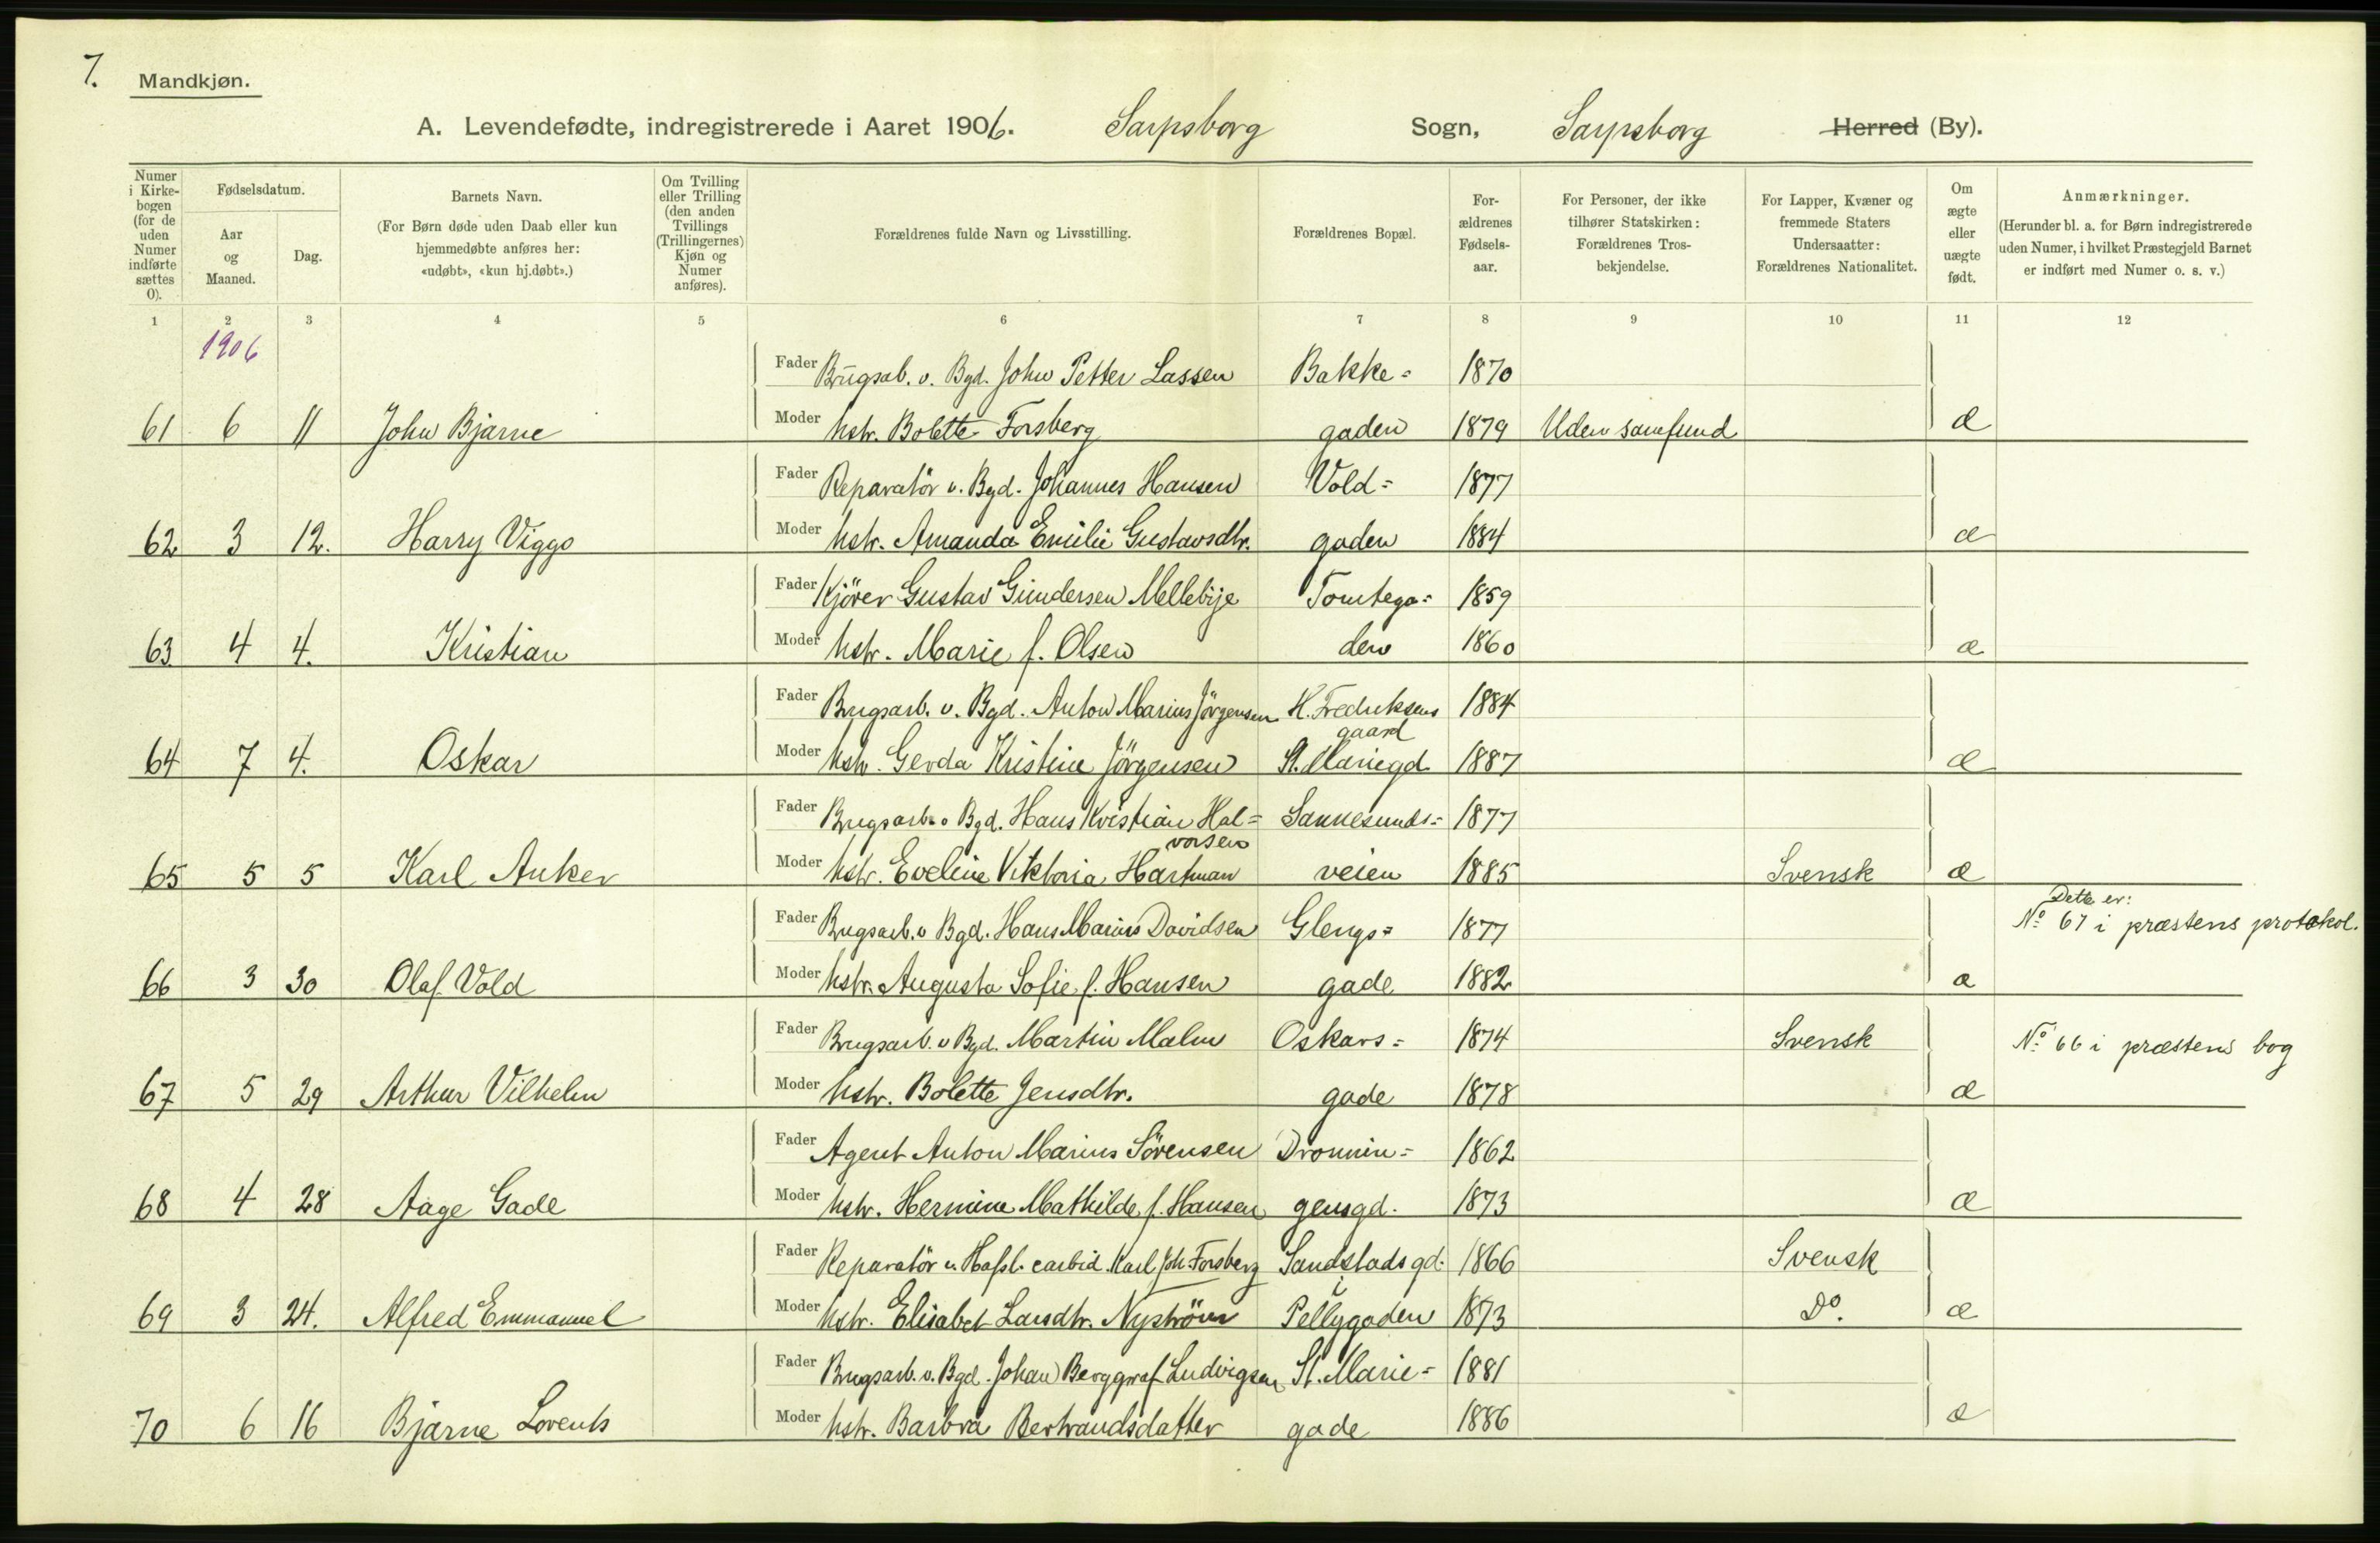 7.
Mandkjøn.
A. Levendefødte, indregistrerede i Aaret 1906. Sarpsborg Sogn, Sarpsborg Herred (By).
Numer i Kirkebogen (for de uden Numer indførte sættes 0).
Fødselsdatum.
Aar og Maaned.
Dag.
Barnets Navn.
(For Børn døde uden Daab eller kun hjemmedøbte anføres her: «udøbt», «kun hj.døbt».)
Om Tvilling eller Trilling (den anden Tvillings (Trillingernes) Kjøn og Numer anføres).
Forældrenes fulde Navn og Livsstilling.
Forældrenes Bopæl.
Forældrenes Fødselsaar.
For Personer, der ikke tilhører Statskirken: Forældrenes Trosbekjendelse.
For Lapper, Kvæner og fremmede Staters Undersaatter: Forældrenes Nationalitet.
Om ægte eller uægte født.
Anmærkninger.
(Herunder bl. a. for Børn indregistrerede uden Numer, i hvilket Præstegjeld Barnet er indført med Numer o. s. v.)
1 2 3 4 5 6 7 8 9 10 11 12
1906
Fader Brugsab. v. Bgd. John Petter Lassen Bakke= 1870
61 6 11 John Bjarne Moder Hstr. Bolette Forsberg gaden 1879 Uden samfund æ
Fader Reparatör v. Bgd. Johannes Hansen Vold= 1877
62 3 12. Harry Viggo Moder Hstr. Amanda Emilie Gustavsdtr. gaden 1884 æ
Fader Kjörer Gustav Gundersen Mellebye Tomtega= 1859
63 4 4. Kristian Moder Hstr. Marie f. Olsen den 1860 æ
Fader Brugsarb. v. Bgd. Anton Marius Jörgensen H. Fredriksens gaard 1884
64 7 4. Oskar Moder Hstr. Gerda Kristine Jörgensen St. Mariegd. 1887 æ
Fader Brugsarb. v Bgd. Hans Kristian Hal=vorsen Sannesunds= 1877
65 5 5 Karl Anker Moder Hstr. Eveline Viktoria Hartman veien 1885 Svensk æ
Fader Brugsarb. v Bgd. Hans Marius Davidsen Glengs= 1877 Dette er: No 67 i præstens protokol.
66 3 30 Olaf Vold Moder Hstr. Augusta Sofie f. Hansen gade 1882 æ
Fader Brugsarb. v Bgd. Martin Malm Oskars= 1874 Svensk No 66 i præstens bog
67 5 29 Arthur Vilhelm Moder Hstr. Bolette Jensdtr. gade 1878 æ
Fader Agent Anton Marius Sörensen Dronnin= 1862
68 4 28 Aage Gade Moder Hstr. Hermine Mathilde f. Hansen gensgd. 1873 æ
Fader Reparatör v. Hafsl. carbid. Karl Joh. Forsberg Sandstadsgd. i 1866 Svensk
69 3 24. Alfred Emmanuel Moder Hstr. Elisabet Larsdtr. Nyström Pellygaden 1873 Do. æ
Fader Brugsarb. v. Bgd. Johan Berggraf Ludvigsen St. Marie= 1881
70 6 16 Bjarne Lorents Moder Hstr. Barbra Bertrandsdatter gade 1886 æ